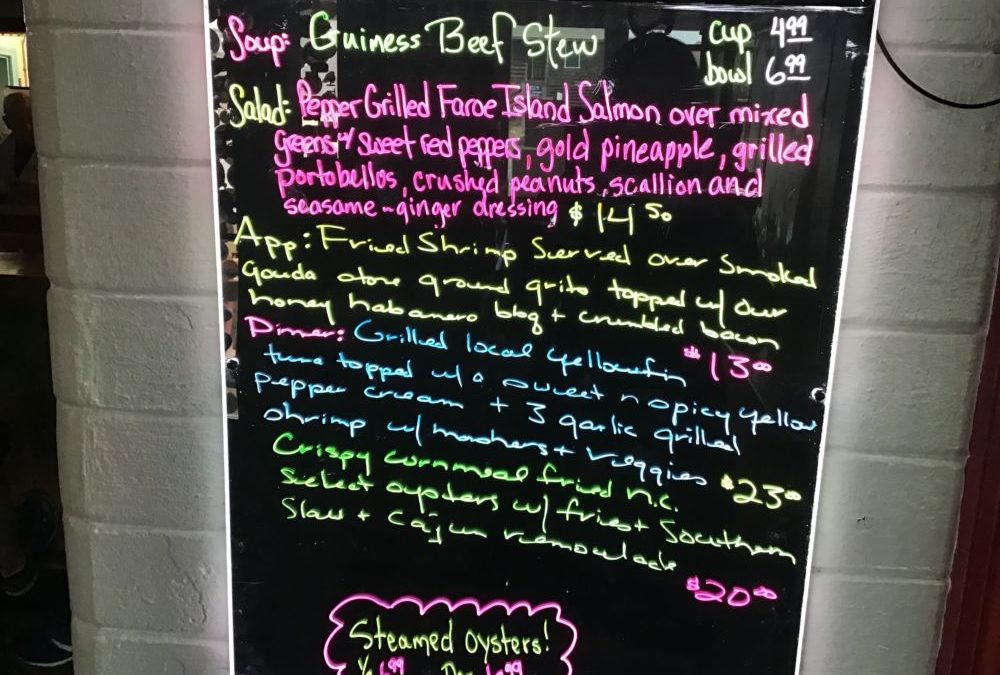 Soup: Guiness Beef Stew cup 4.99
bowl 6.99
Salad: Pepper Grilled Faroe Island Salmon over mixed
greens w/ sweet red peppers, gold pineapple, grilled
portobellos, crushed peanuts, scallion and
seasame-ginger dressing $14.50
App: Fried Shrimp Served over Smoked
Gouda stone ground grits topped w/ our
honey habanero bbq + crumbled bacon
$13.00
Dinner: Grilled local yellowfin
tuna topped w/ a sweet n spicy yellow
pepper cream + 3 garlic grilled
shrimp w/ mashers + veggies $23.00
Crispy cornmeal fried n.c.
select oysters w/ fries + Southern
Slaw + Cajun remoulade
$20.00
Steamed Oysters!